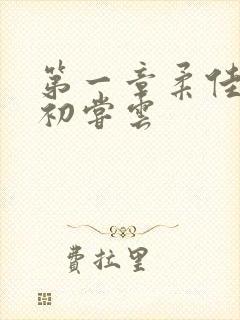 第一章柔佳
初尝雲
费拉里